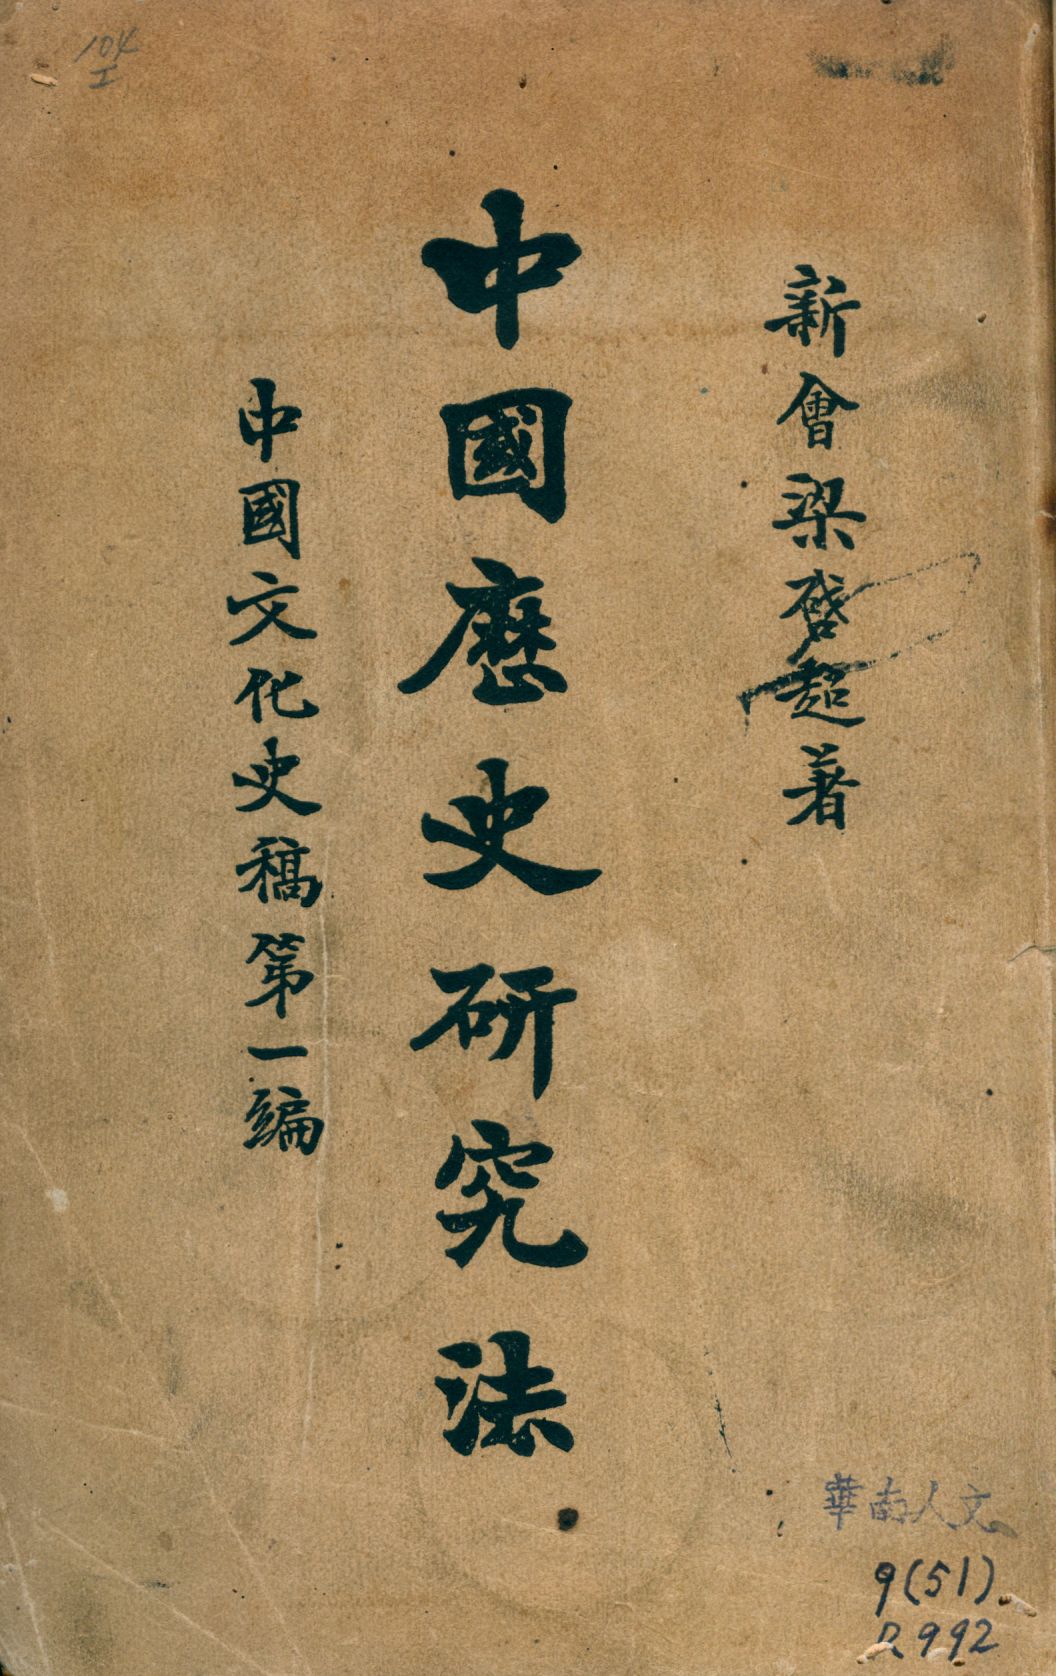 新會梁啓超著
中國歷史研究法
中國文化史稿第一編
104
I
華南人文
9(51)
2992